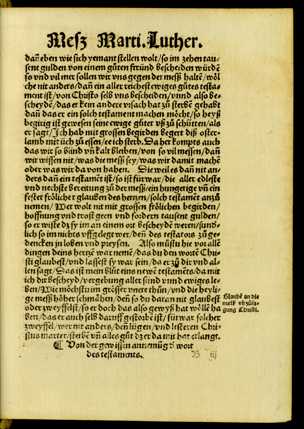 Mesz Marti. Luther.
dañ eben wie sich yemant stellen wolt/ so im zehen tau-
sent gulden von einem gůten fründ bescheiden würdē
so vnd vil mer sollen wir vns gegen der mesß haltē/ wöl
che nit anders/ dañ ein aller reichest ewiges gůtes testa
ment ist/ von Christo selb vns bescheidē/ vnnd also be-
scheydē/ das er kein andere vrsach hat zů sterbē gehabt
dañ das er ein solch testament machen möcht/ so heysß
begirig ist gewesen seine ewige gůter vß zů schütten/ als
er sagt/ Ich hab mit grossen begirden begert disß oster-
lamb mit üch zů essen/ ee ich sterb. Da her kompts auch
das wir so blind vñ kalt bleiben/ von so vil messen/ dañ
wir wissen nit/ was die mesß sey/ was wir damit machē
oder was wir da von haben. Die weil es dañ nit an-
ders dañ ein testamēt ist/ so ist fürwar/ die aller edleste
vnd nechste bereitung zů der mesß/ ein hungerige vñ ein
fester frölicher glauben des herrn/ solch testamēt anzů
nemen/ Wer wolt nit mit grossen frölichen begirden/
hoffnung vnd trost geen vnd fordern tausent gulden/
so er wiste dz sy im an einem ort bescheydē weren/ sund-
lich so im nichts vffgelegt wer/ deñ des testators zů ge
dencken zů loben vnd preysen. Also můstu hie vor allē
dingen deins hertzē war nemē/ das du den wortē Chri
sti glaubest/ vnd lassest sy war sein/ da er zů dir vnd al-
len sagt/ Das ist mein blůt eins newē testamēts/ da mit
ich dir bescheyd/ vergebung aller sünd vnnd ewiges le-
bē/ Wie möchstu im grösser vneer thůn/ vnd die heyli-
ge mesß höher schmähen/ deñ so du daran nit glaubest
oder zweyffelst/
ben/
zweyffel/ wer nit anders/ deñ lügen/ vnd lesteren Chri-
Glaubē an die
mesß
gung Christi.
Von der
des testaments.
B iij